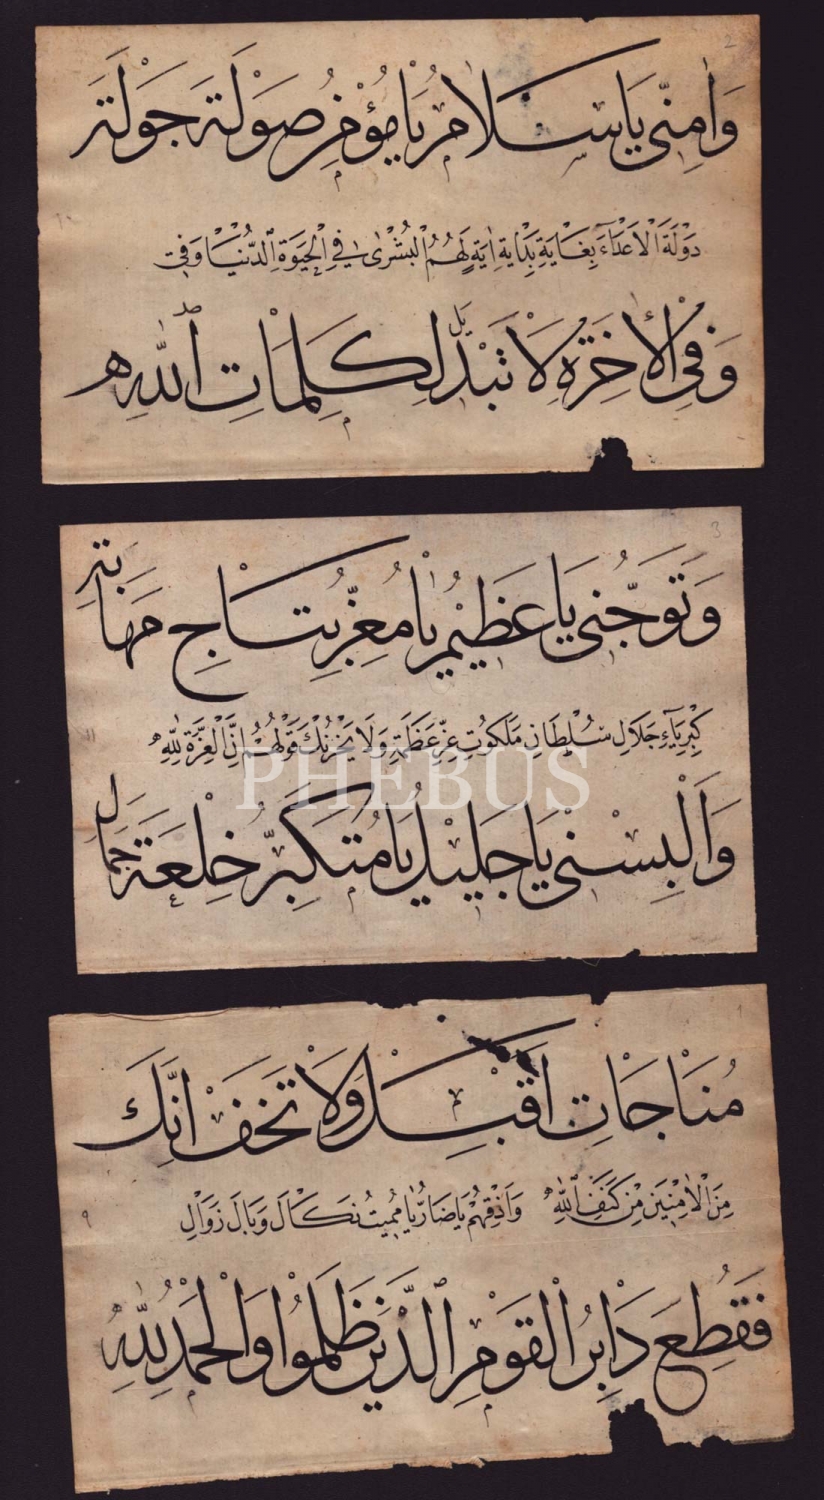 وَاٰمِنِّى يَا سَلَامُ يَا مُؤْمِنُ صَوْلَةَ جَوْلَةَ
دَوْلَةَ الْاَعْدَاءِ بِغَايَةِ بِدَايَةِ اٰيَةِ لَهُمُ الْبُشْرٰى فِى الْحَيٰوةِ الدُّنْيَا وَفِى
وَفِى الْاٰخِرَةِ لَا تَبْدِيلَ لِكَلِمَاتِ اللّٰهِ
وَتَوِّجْنِى يَا عَظِيمُ يَا مُعِزُّ بِتَاجِ مَهَابَةِ
كِبْرِيَاءِ جَلَالِ سُلْطَانِ مَلَكُوتِ عِزِّ عَظَمَةِ وَلَا يَحْزُنْكَ قَوْلُهُمْ اِنَّ الْعِزَّةَ لِلّٰهِ
PHEBUS
وَاَلْبِسْنِى يَا جَلِيلُ يَا مُتَكَبِّرُ خِلْعَةَ جَمَالِ
مُنَاجَاتِ اَقْبِلْ وَلَا تَخَفْ اِنَّكَ
مِنَ الْاٰمِنِينَ مِنْ كَنَفِ اللّٰهِ وَاَذِقْهُمْ يَا ضَارُّ يَا مُمِيتُ نَكَالَ وَبَالَ زَوَالِ
فَقُطِعَ دَابِرُ الْقَوْمِ الَّذِينَ ظَلَمُوا وَالْحَمْدُ لِلّٰهِ